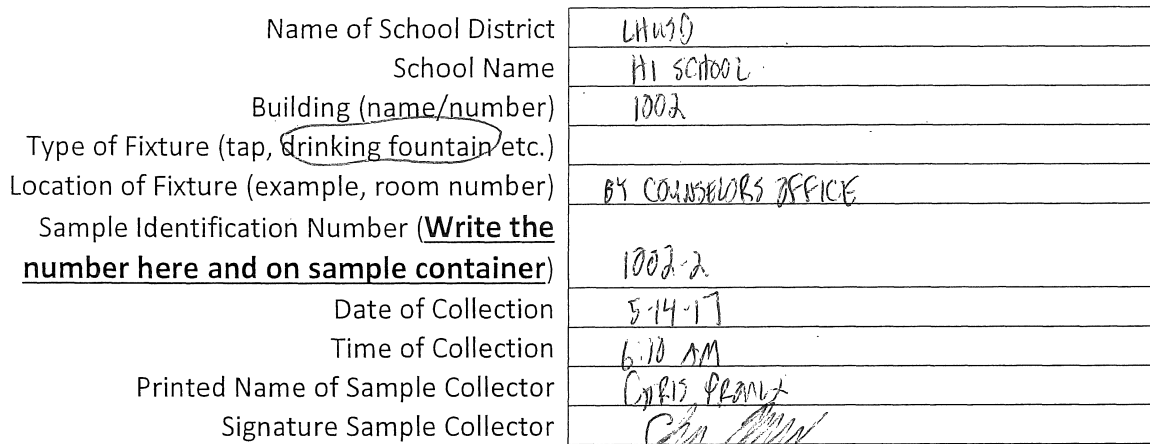 Name of School District LHUSD
School Name HI SCHOOL
Building (name/number) 1002
Type of Fixture (tap, drinking fountain etc.)
Location of Fixture (example, room number) BY COUNSELORS OFFICE
Sample Identification Number (Write the
number here and on sample container) 1002-2
Date of Collection 5-14-17
Time of Collection 6:10 AM
Printed Name of Sample Collector CHRIS
Signature Sample Collector